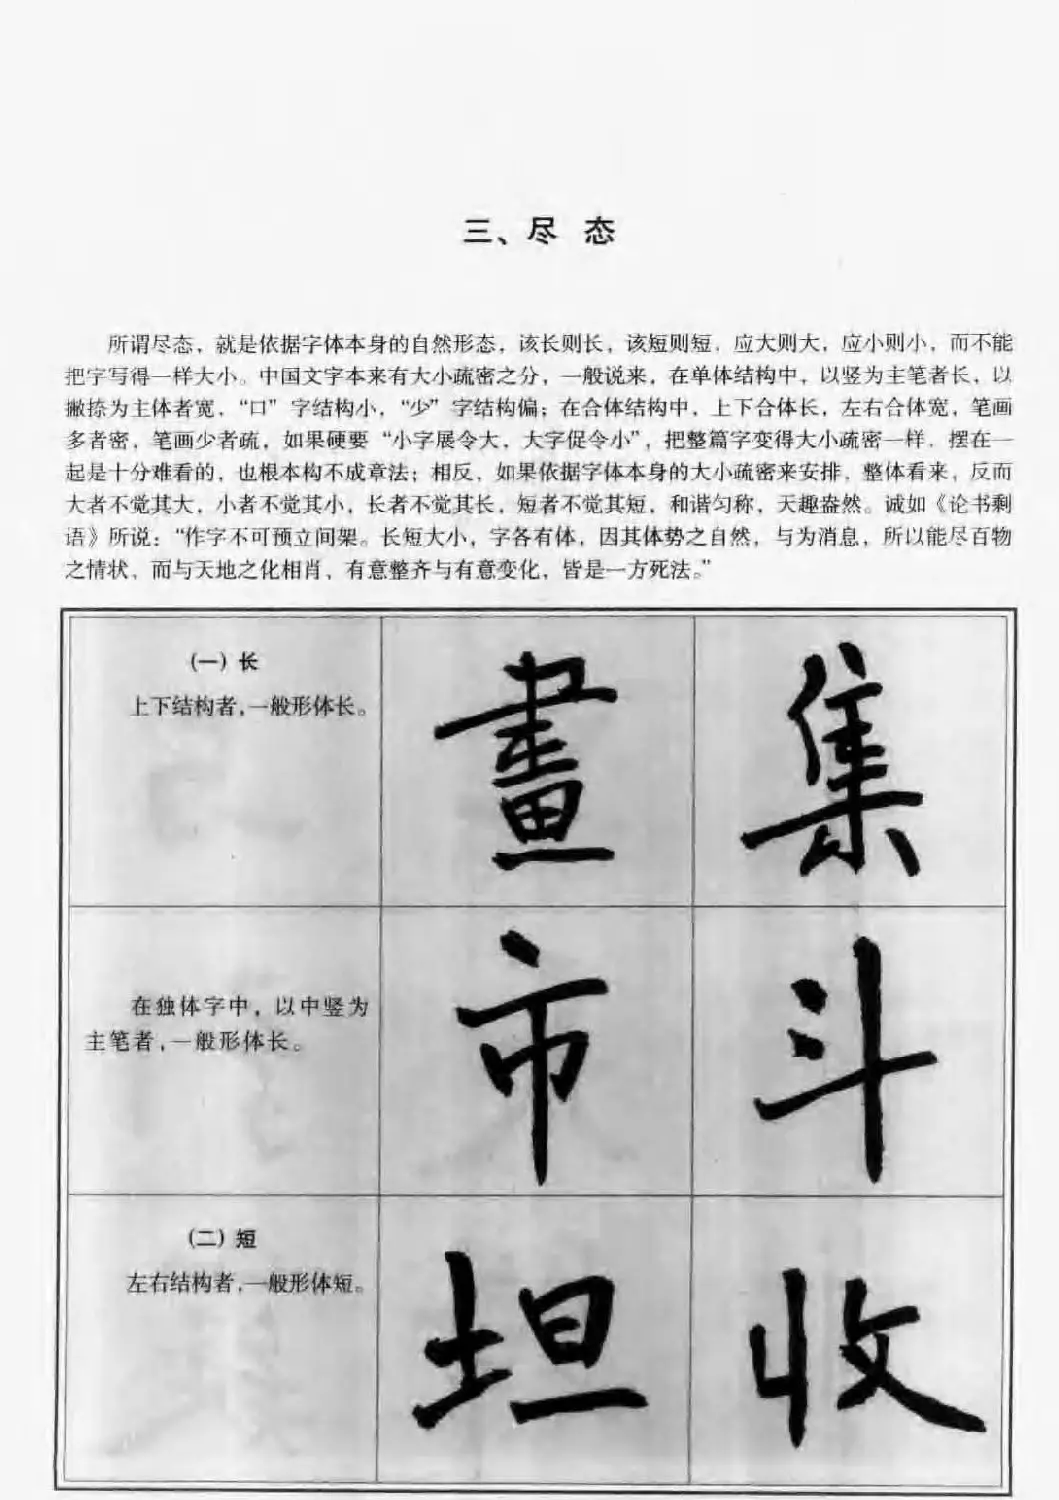 三、尽 态
所谓尽态，就是依据字体本身的自然形态，该长则长，该短则短，应大则大，应小则小，而不能
把字写得一样大小。中国文字本来有大小疏密之分，一般说来，在单体结构中，以竖为主笔者长，以
撇捺为主体者宽，“口”字结构小，“少”字结构偏；在合体结构中，上下合体长，左右合体宽，笔画
多者密，笔画少者疏，如果硬要“小字展令大，大字促令小”，把整篇字变得大小疏密一样，摆在一
起是十分难看的，也根本构不成章法；相反，如果依据字体本身的大小疏密来安排，整体看来，反而
大者不觉其大，小者不觉其小，长者不觉其长，短者不觉其短，和谐匀称，天趣盎然。诚如《论书剩
语》所说：“作字不可预立间架。长短大小，字各有体，因其体势之自然，与为消息，所以能尽百物
之情状，而与天地之化相肖，有意整齐与有意变化，皆是一方死法。”
（一）长
上下结构者，一般形体长。
畫 集
在独体字中，以中竖为
主笔者，一般形体长。
市 斗
（二）短
左右结构者，一般形体短。
坦 收